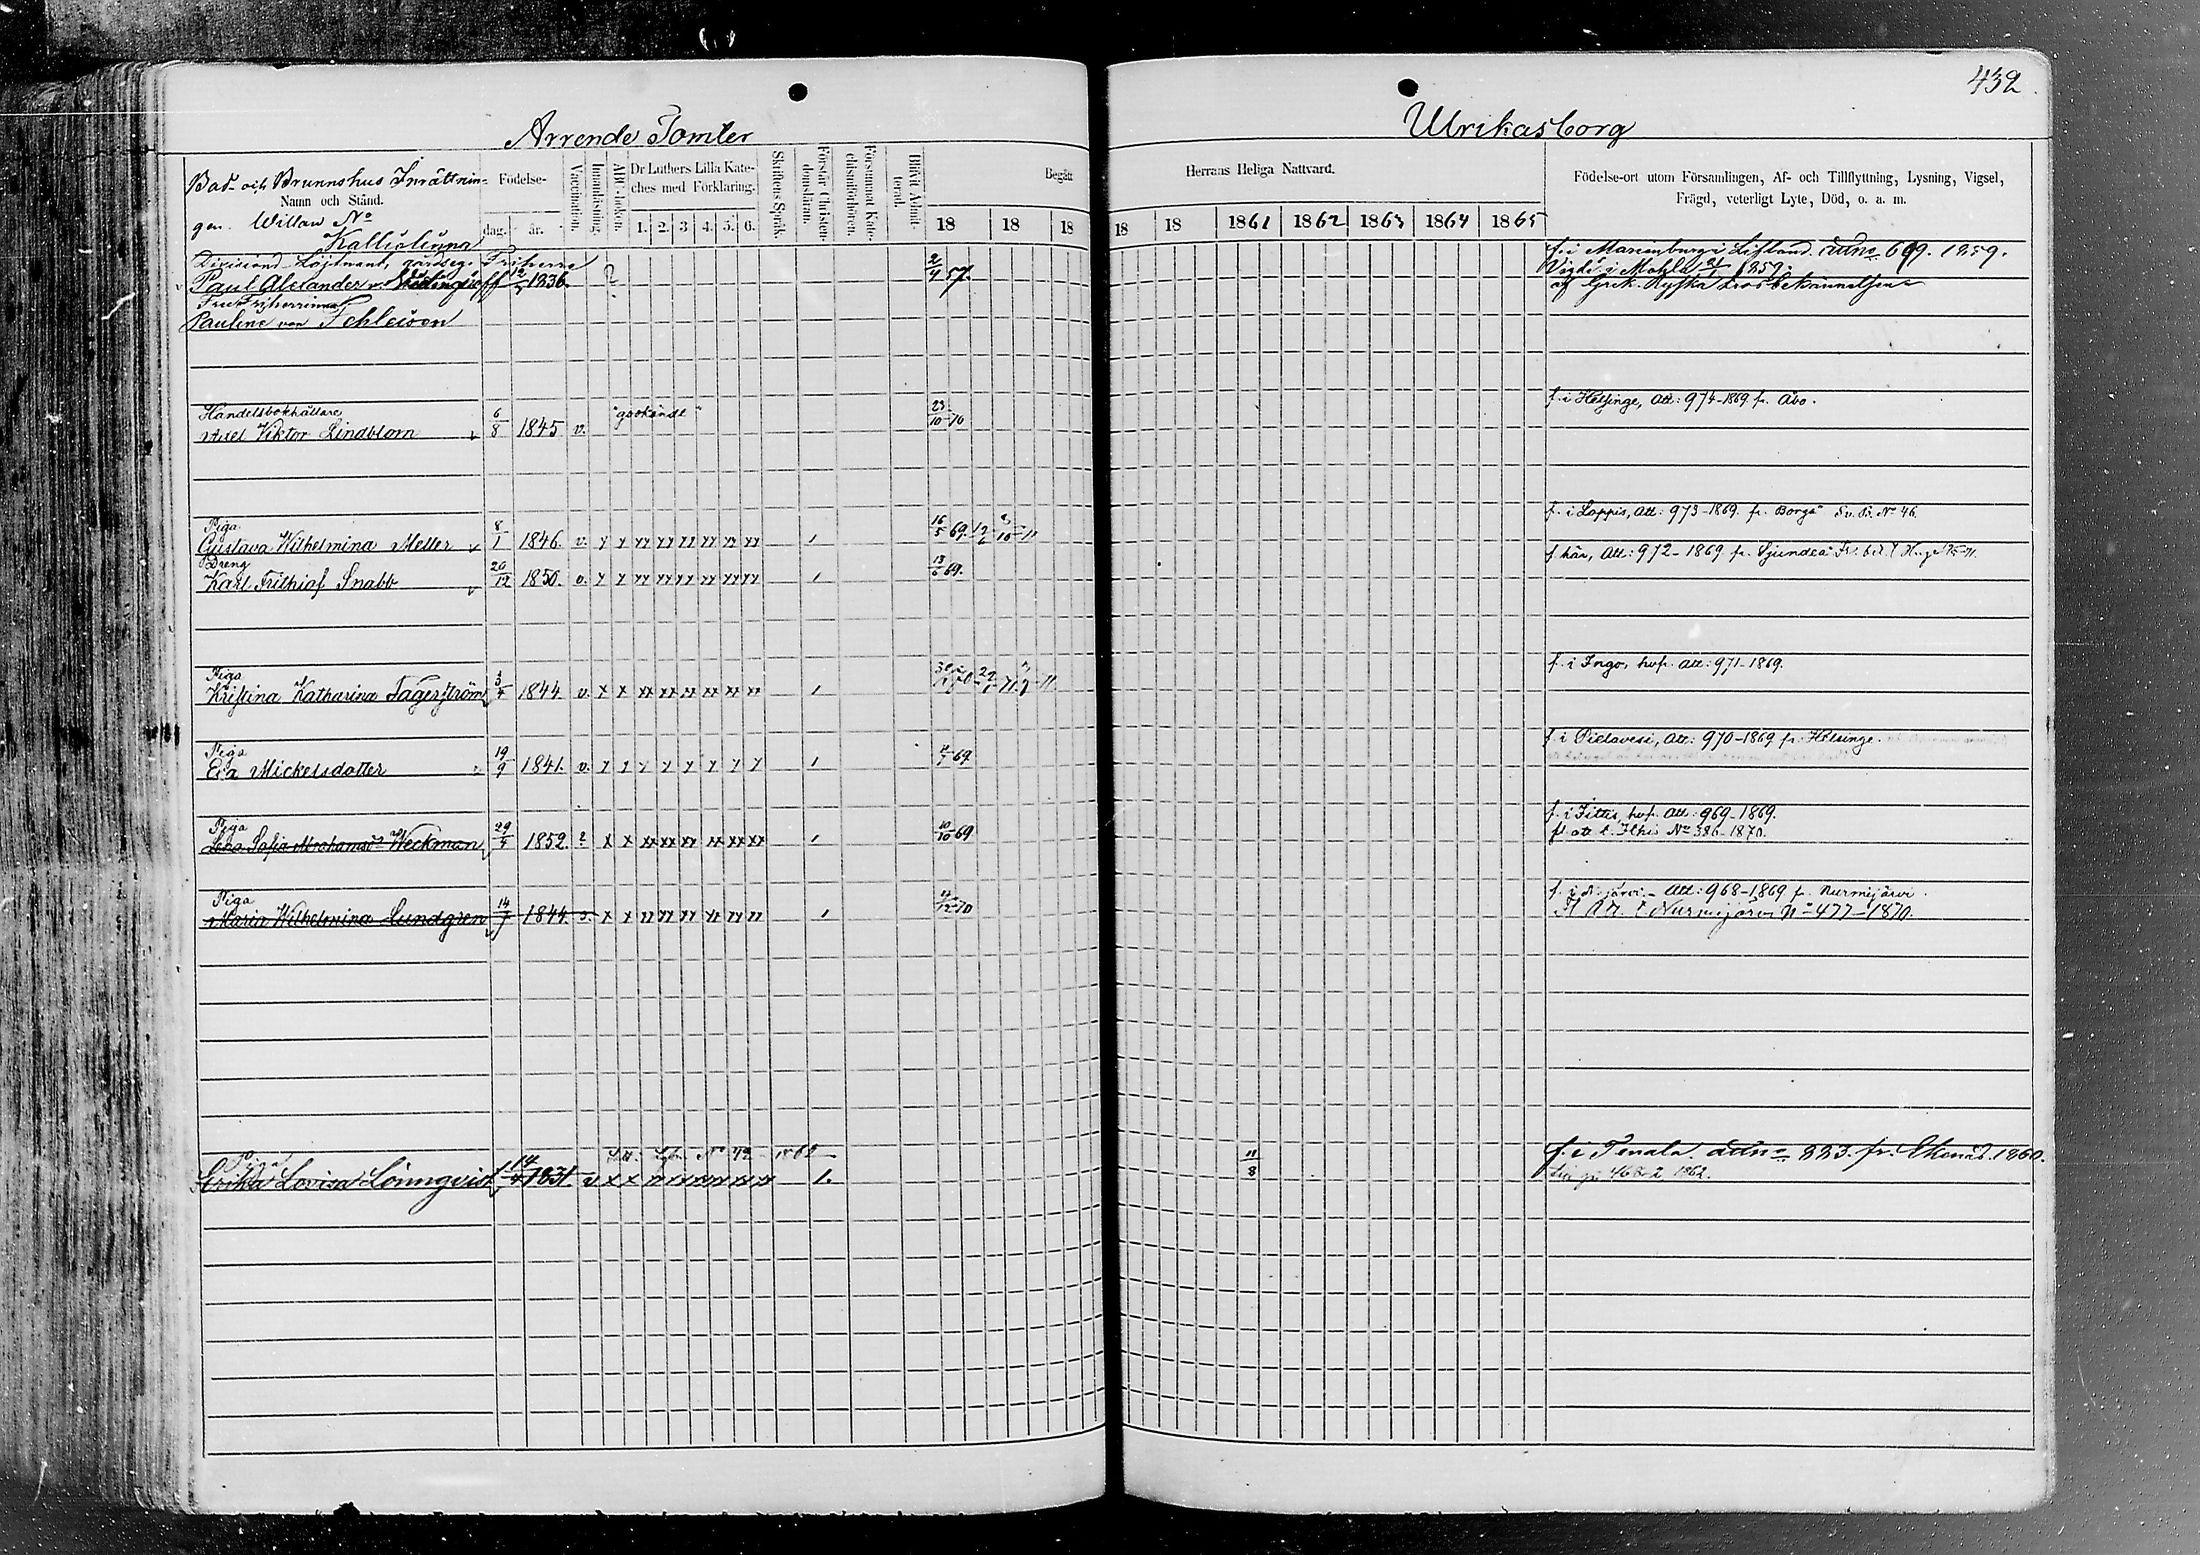 432
Arrende Tomter
Ulrikasborg
Bad- och Brunnshus Inrättnin-
Namn och Stånd.
gen. Willan No
Kalliolinna
Födelse-
dag. år.
Vaccination.
Innanläsning.
ABC-boken.
Dr Luthers Lilla Kate-
ches med Förklaring.
1. 2. 3 4. 5. 6.
Skriftens Språk.
Förstår Christen-
domsläran.
Försummat Kate-
chismiförhören.
Blifvit Admit-
terad.
Begått
Herrans Heliga Nattvard.
18 18 18 18 18 1861 1862 1863 1864 1865
Födelse-ort utom Församlingen, Af- och Tillflyttning, Lysning, Vigsel,
Frägd, veterligt Lyte, Död, o. a. m.
Divisions Löjtnant, Friherre
Paul Alexander v. 12 1836. 2/4 57.
f. i Marienburg i Lifland. 1859.
Vigde i Mohla 1859.
af Grek. Ryska trosbekännelsen
Friherrinna
Pauline von
Handelsbokhållare
Axel Viktor Lindblom 6/8 1845 v. "godkänd" 23/10 70
f. i Helsinge, Att: 974-1869 fr. Åbo.
Piga
Gustava Wilhelmina Meller 8/1 1846. v. 16/5 69.
f. i Loppis, Att: 973-1869. fr. Borgå No 46.
Dreng
Karl Frithiof Snabb 20/12 1850. v. 13/6 69.
f. här, Att: 972-1869 fr. Sjundeå
Piga
Kristina Katharina Fagerström 3/4 1844 v.
f. i Ingo, hof. Att: 971-1869.
Piga
Eva Mickelsdotter 19/9 1841. v. 69.
f. i Pielavesi, Att: 970-1869 fr. Helsinge.
Piga
Lena Sofia Abrahamsdr Weckman 29/4 1852. ? 10/10 69
f. i Sittis, hof. Att: 969-1869.
fl. att t. No 386-1870.
Piga
Maria Wilhelmina Lundgren 14/7 1844. v. 4/12 70
f. i N. järvi. - Att: 968-1869 fr. Nurmijärvi.
Fl Att. t. Nurmijärvi No 477-1870.
Piga
Erika Lovisa Lönnqvist 14 1831. v 11/8
f. i Tenala attn 223. fr. Ekenäs. 1860.
1862.